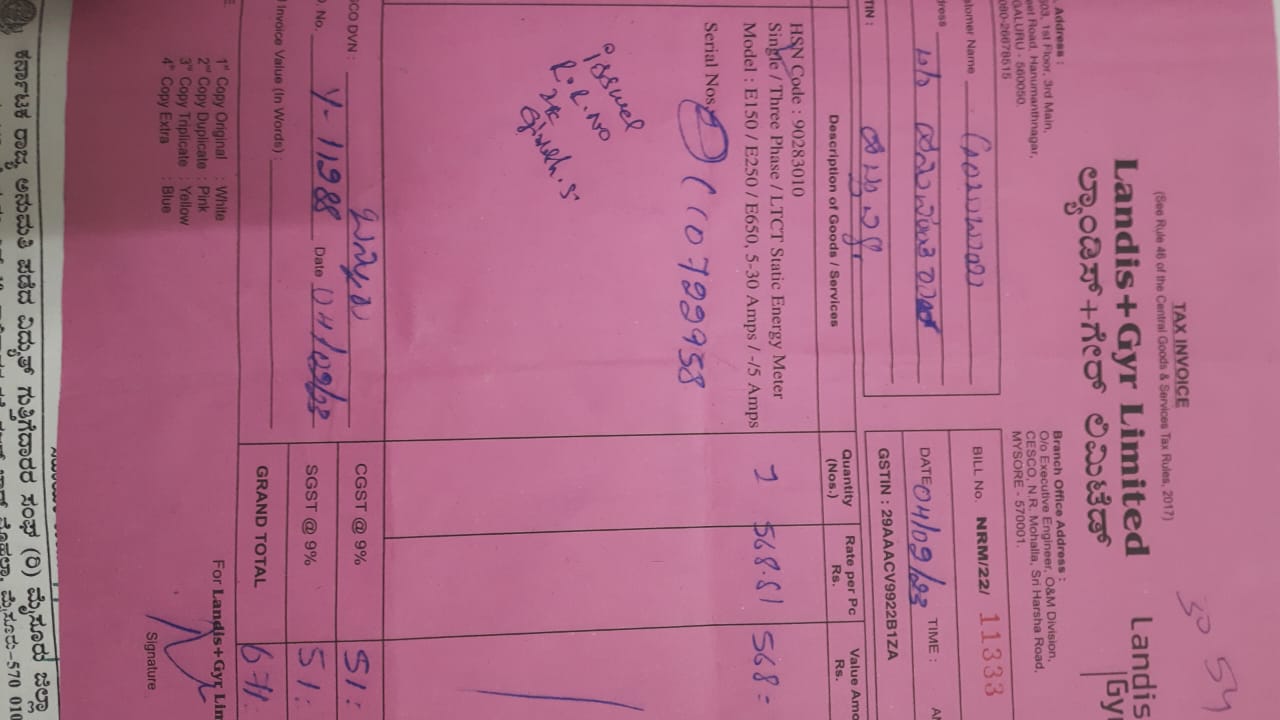 TAX INVOICE
(See Rule 46 of the Central Goods & Services Tax Rules, 2017)
30 54
Landis+Gyr Limited
Landis
Gy
ಲ್ಯಾಂಡಿಸ್+ಗೇರ್ ಲಿಮಿಟೆಡ್
Address :
303, 1st Floor, 3rd Main,
Road, Hanumanthnagar,
GALURU - 560050.
080-26678515
Branch Office Address :
O/o Executive Engineer, O&M Division,
CESCO, N.R. Mohalla, Sri Harsha Road,
MYSORE - 570001.
tomer Name
dress
TIN :
BILL No. NRM/22/ 11333
DATE 04/09/23 TIME :
GSTIN : 29AAACV9922B1ZA
Description of Goods / Services
Quantity (Nos.)
Rate per Pc Rs.
Value Amo Rs.
HSN Code : 90283010
Single / Three Phase / LTCT Static Energy Meter
Model : E150 / E250 / E650, 5-30 Amps / -/5 Amps
1 568.81 568=
Serial Nos.
issued
R.R.NO
SCO DVN :
CGST @ 9% 51:
No. Y-11988 Date 04/09/23
SGST @ 9% 51:
Invoice Value (In Words) :
GRAND TOTAL 671:
1st Copy Original : White
2nd Copy Duplicate : Pink
3rd Copy Triplicate : Yellow
4th Copy Extra : Blue
For Landis+Gyr Lim
Signature
ಕರ್ನಾಟಕ ರಾಜ್ಯ ಅನುಮತಿ ಪಡೆದ ವಿದ್ಯುತ್ ಗುತ್ತಿಗೆದಾರರ ಸಂಘ (ರಿ) ಮೈಸೂರು ಜಿಲ್ಲಾ